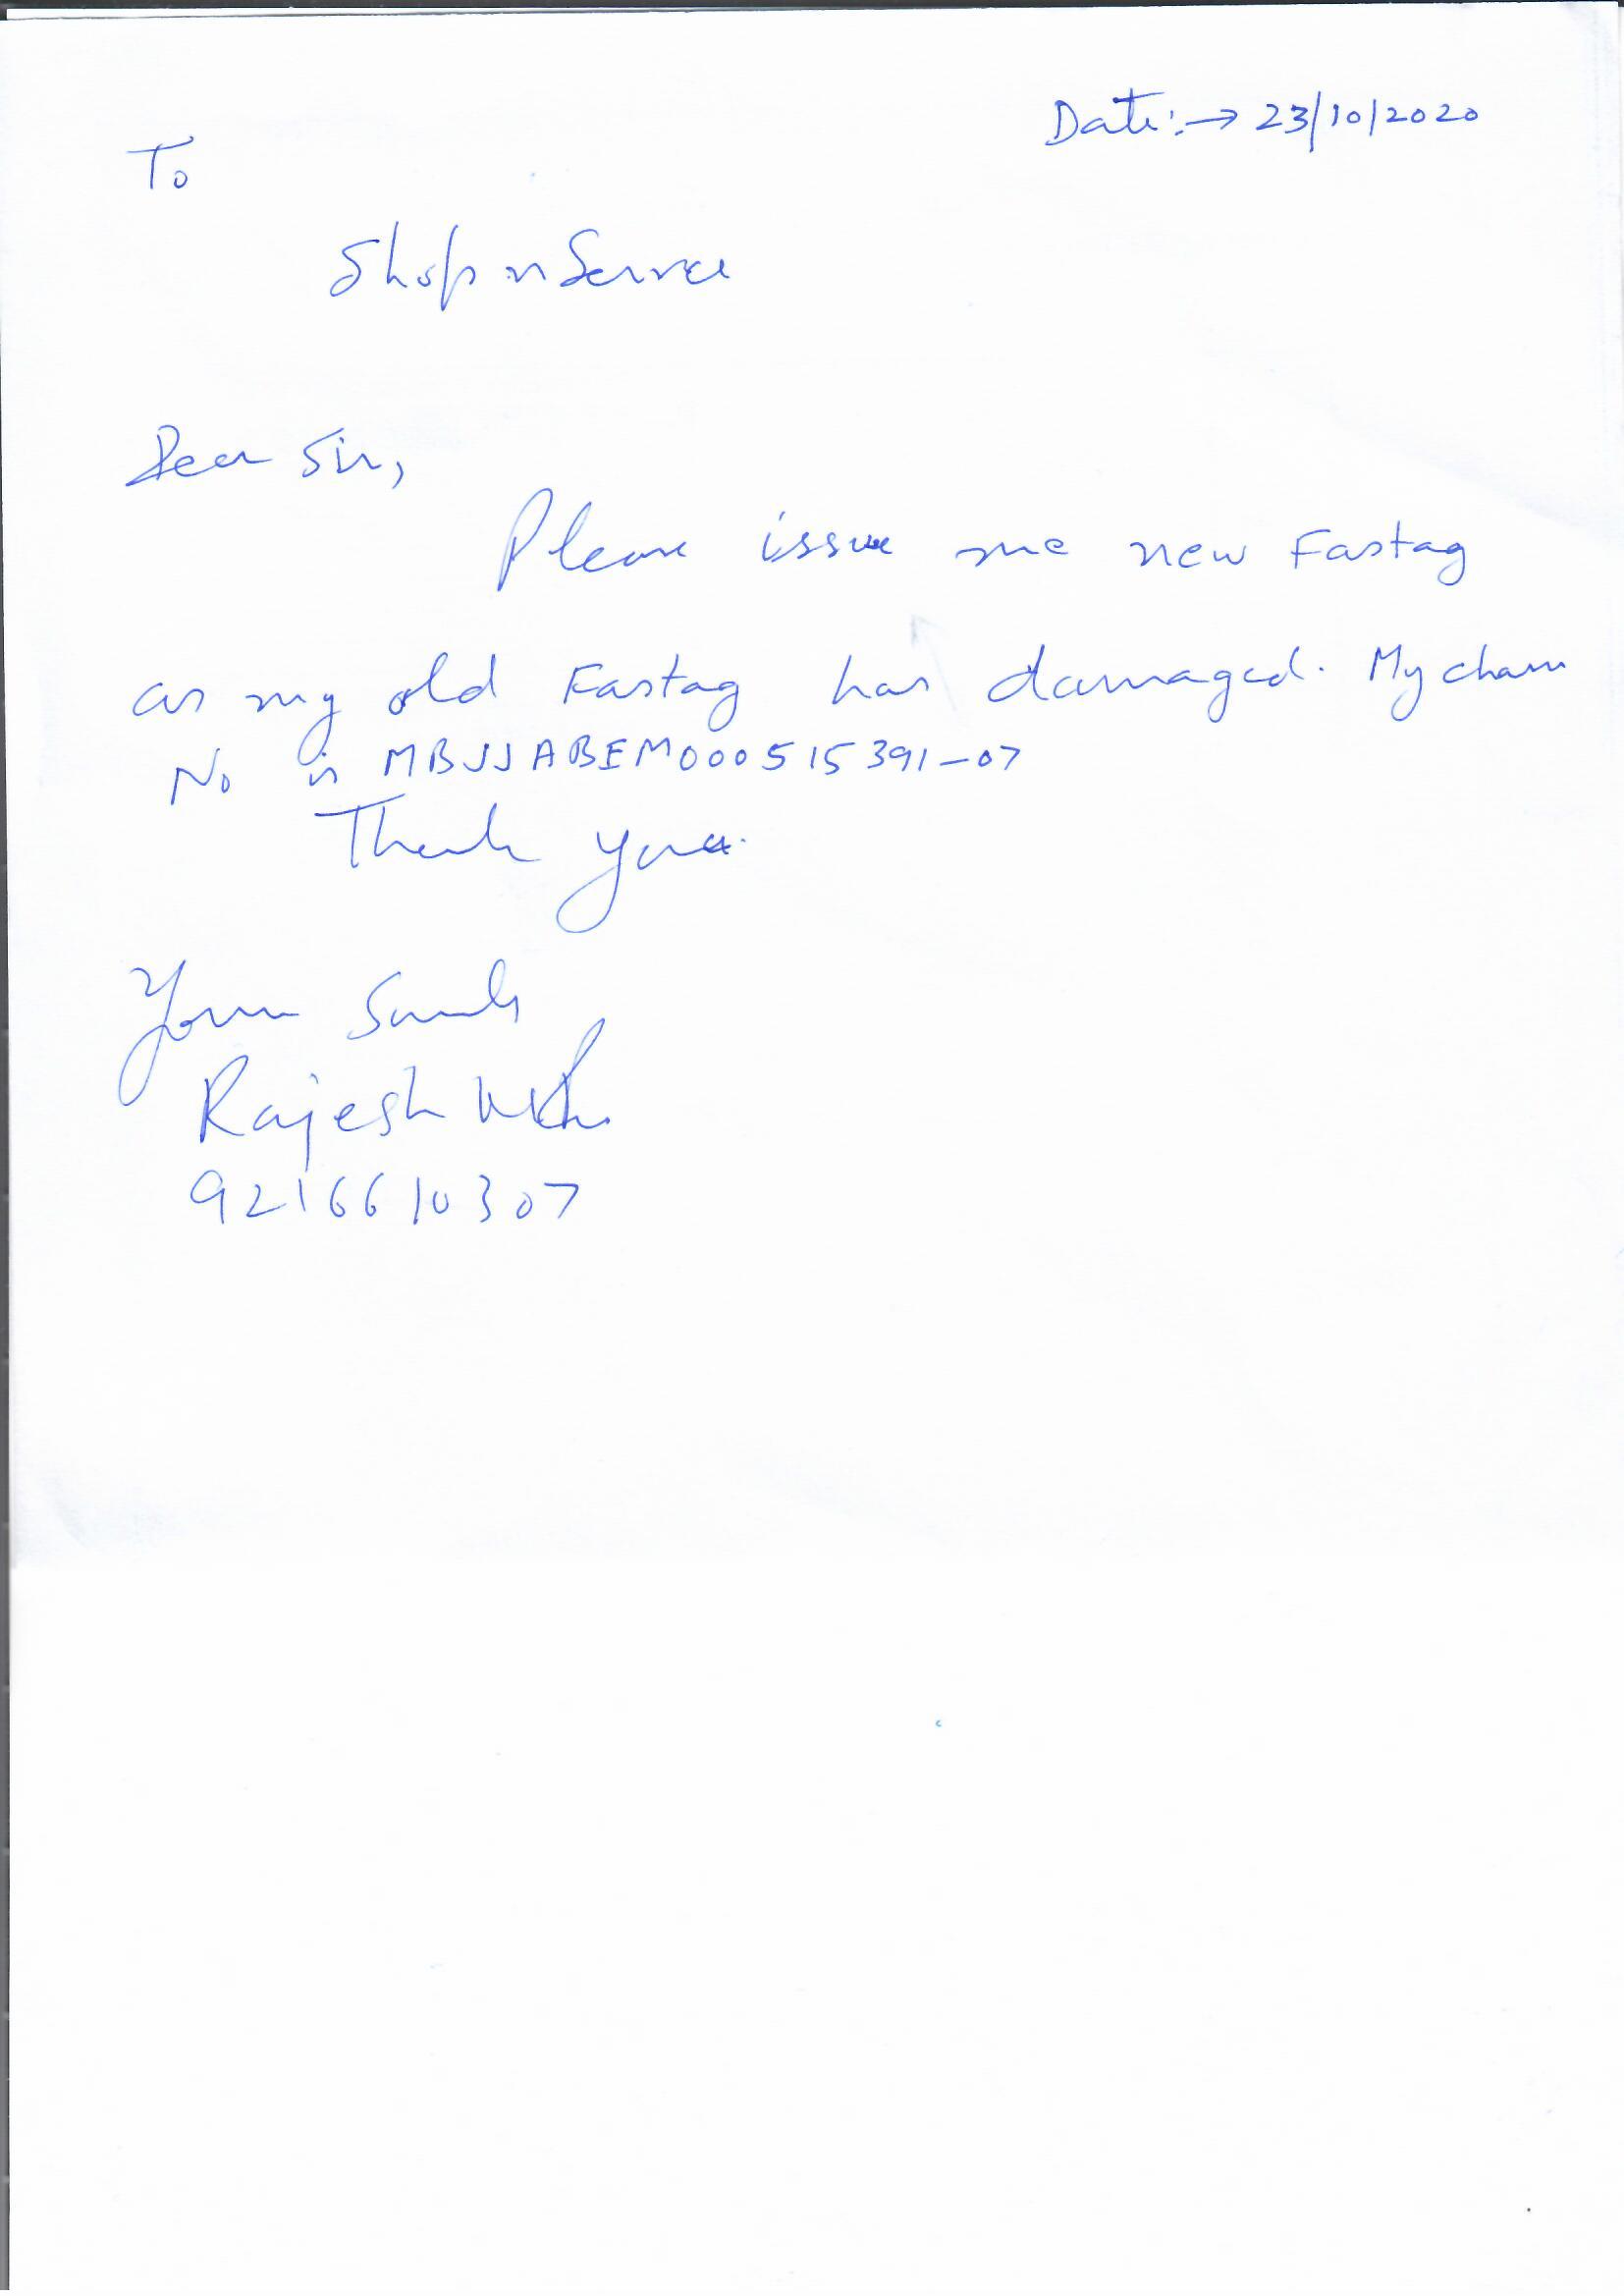 Date:→ 23/10/2020
To
Shop n Service
Dear Sir,
Please issue me new Fastag
as my old Fastag has damaged. My chassis
No is MBJJABEM000515391-07
Thank you.
Yours
Rajesh
9216610307